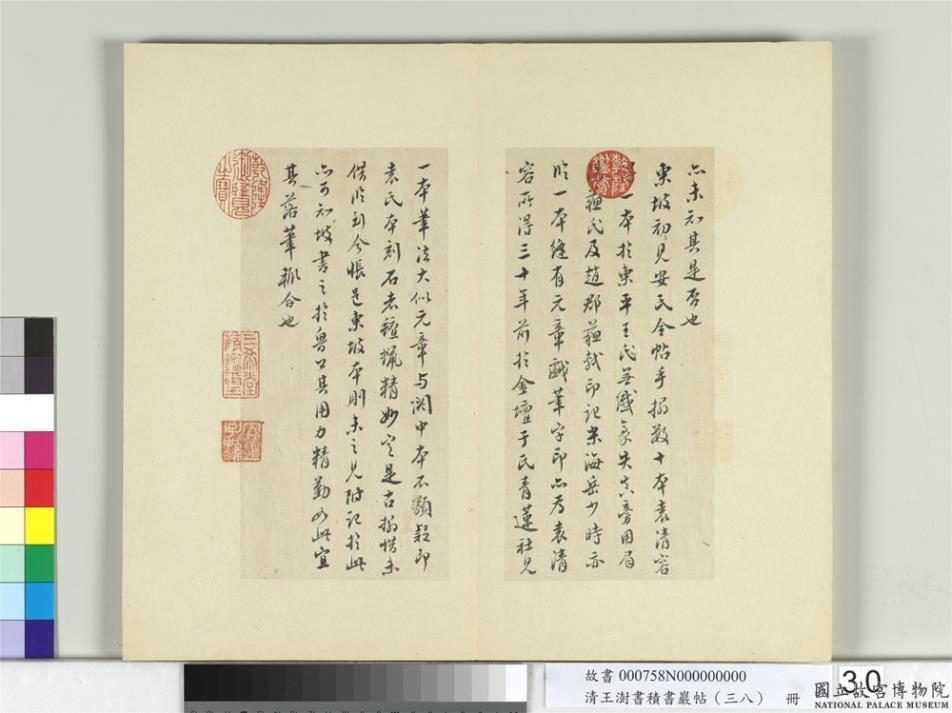 亦未知其是否也
東坡初見安氏全帖手搨數十本袁清容
一本於東平王氏無纖豪失真旁用眉
蘇氏及趙郡蘇軾印記米海岳少時亦
臨一本縫有元章戲筆字印亦為袁清
容所得三十年前於金壇于氏青蓮社見
一本筆法大似元章與關中本不類疑即
袁氏本刻石者氊蠟精妙定是古搨惜未
借臨到今悵是東坡本則未之見附記於此
亦可知坡書之於魯公其用力精勤如此宜
其落筆輒合也
乾隆鑑賞
乾隆御覽之寶
三希堂精鑑璽
宜子孫
故書 000758N000000000
清王澍書積書巖帖(三八) 冊
30
國立故宮博物院
NATIONAL PALACE MUSEUM